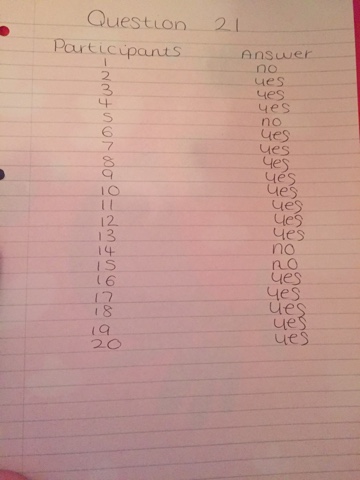 Question 21
Participants Answer
1 no
2 yes
3 yes
4 yes
5 no
6 yes
7 yes
8 yes
9 yes
10 yes
11 yes
12 yes
13 yes
14 no
15 no
16 yes
17 yes
18 yes
19 yes
20 yes